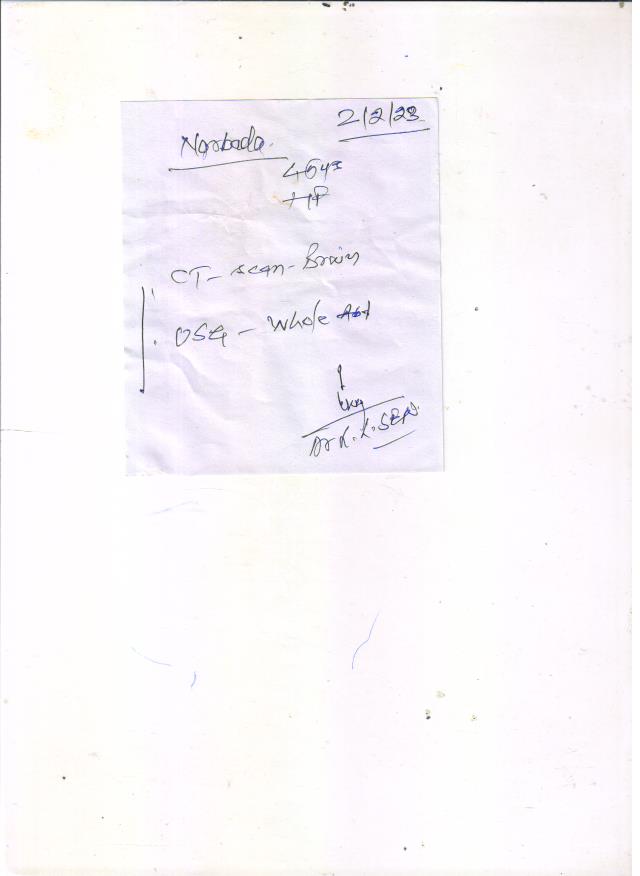 2/2/23
Narbada.
45yrs
CT-scan-Brain
USG - Whole Abd
Dr K. K. SEN.